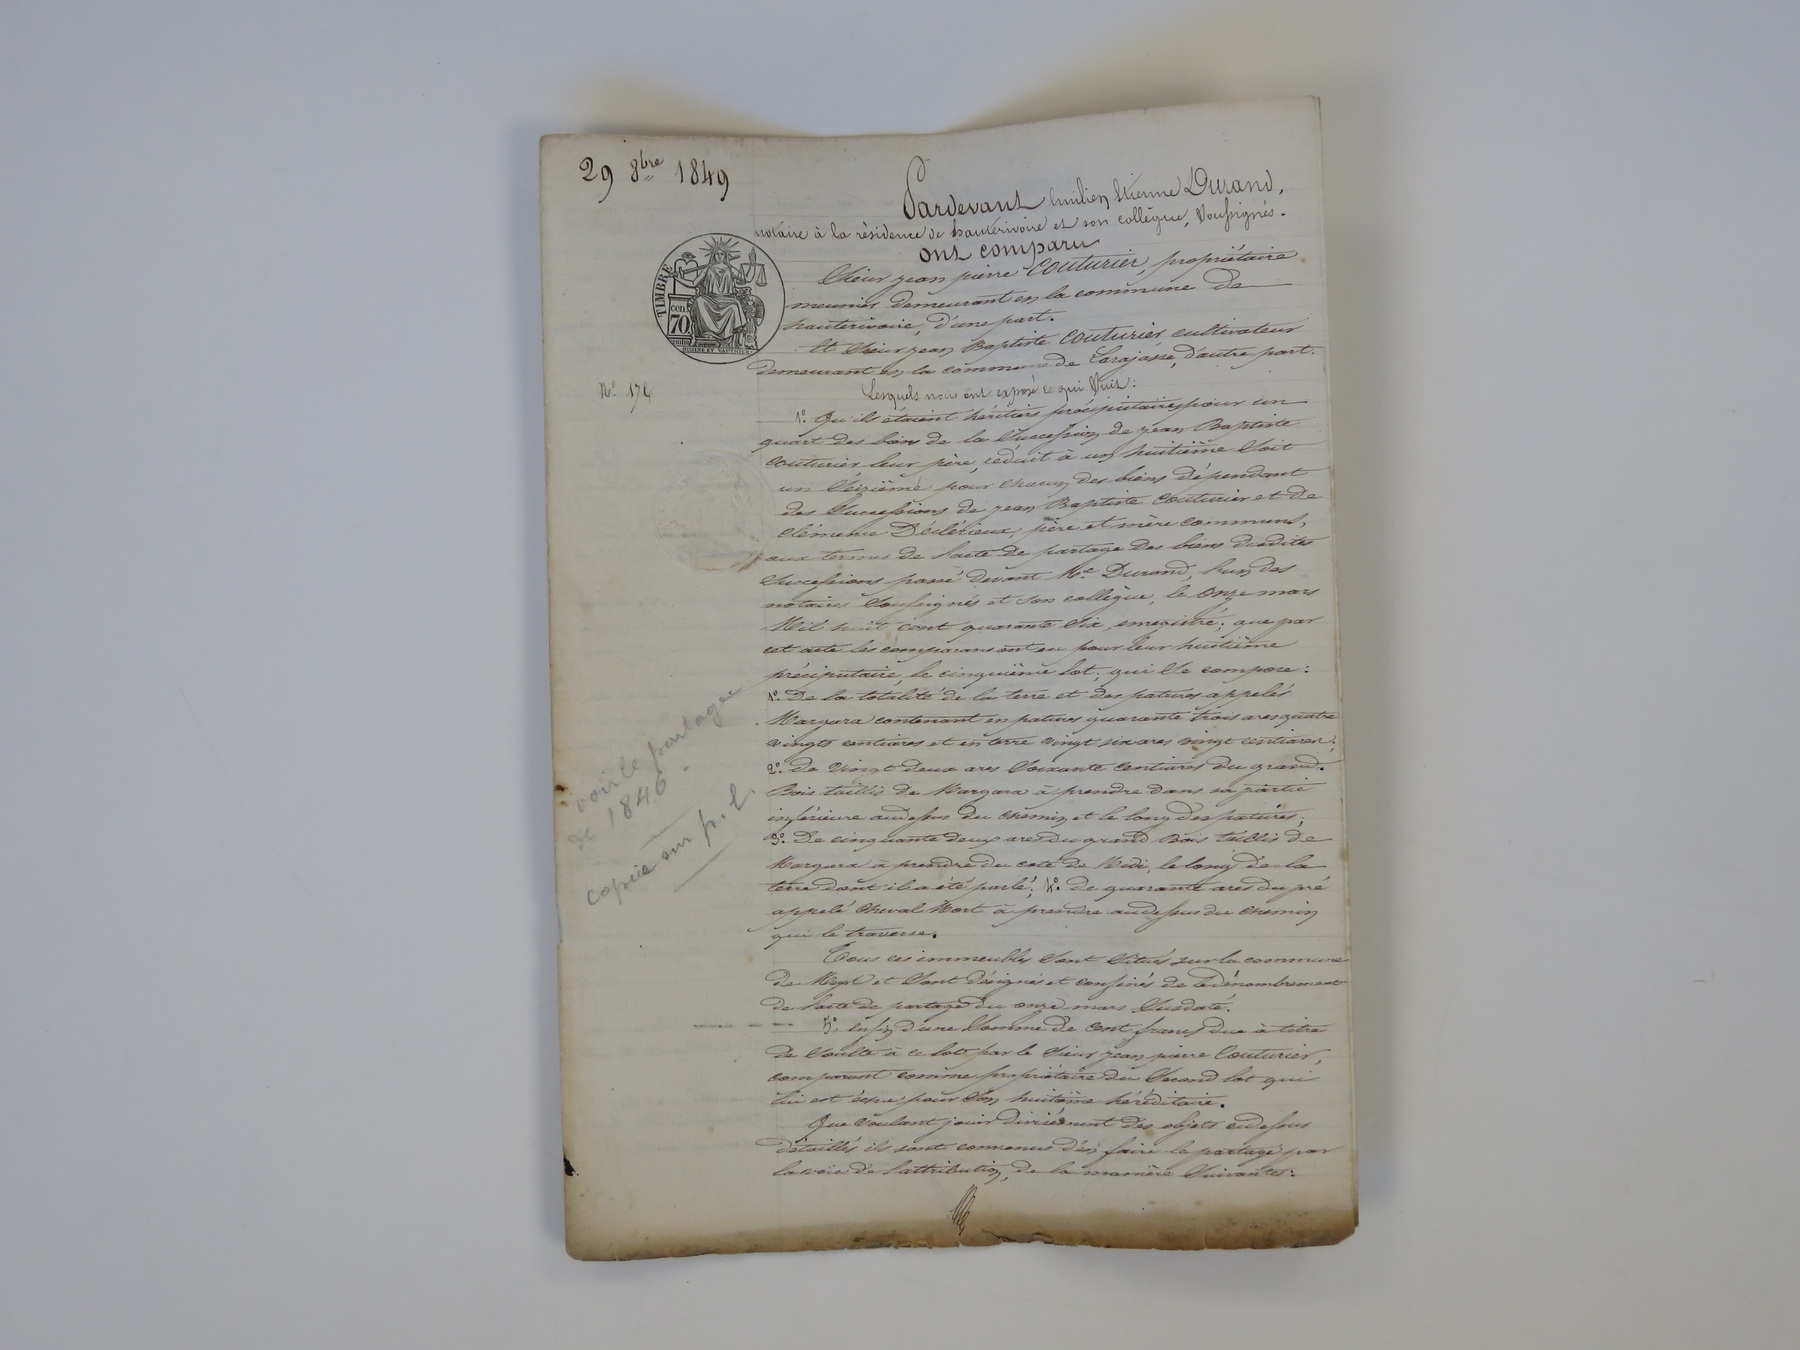 29 8bre 1849
Pardevant Emilien Etienne Durand,
notaire à la résidence de hauterivoire et son collègue, Soussignés.
ont comparu
Sieur jean pierre Couturier, propriétaire
meunier demeurant en la commune de
hauterivoire, d'une part.
Et Sieur jean Baptiste Couturier, cultivateur
demeurant en la commune de Larajasse, d'autre part.
TIMBRE
cen. 70
N° 176
Lesquels nous ont exposé ce qui Suit:
1° Qu'ils étaient héritiers préciputaires pour un
quart des biens de la Succession de jean Baptiste
Couturier leur père, réduit à un huitième Soit
un Seizième pour chacun des biens dépendant
des Successions de jean Baptiste Couturier et de
Clémence Déclérieux, père et mère communs,
aux termes de l'acte de partage des biens desdites
Successions passé devant Me Durand, l'un des
notaires Soussignés et Son collègue, le onze mars
Mil huit cent quarante Six, enregistré; que par
cet acte les comparans ont eu pour leur huitième
préciputaire, le cinquième lot, qui Se compose:
1° De la totalité de la terre et des patures appelés
Margara contenant en patures quarante trois ares quatre
vingts centiares et en terre vingt six ares vingt centiares;
2° de vingt deux ares Soixante centiares du grand
Bois taillis de Margara à prendre dans sa partie
inférieure audessus du chemin et le long des patures;
3° De cinquante deux ares du grand Bois taillis de
Margara à prendre du coté de Midi, le long de la
terre dont il a été parlé; 4° de quarante ares du pré
appelé Cheval Mort à prendre audessus du chemin
qui le traverse.
voir le partage
de 1846
copie sur p. l.
Tous ces immeubles Sont Situés sur la commune
de et Sont désignés et confinés de dénombrement
de l'acte de partage du onze mars Susdaté.
5° enfin d'une Somme de cent francs due à titre
de Soulte à ce lot par le Sieur jean pierre Couturier,
comparant comme propriétaire du Second lot qui
lui est échu pour Son huitième héréditaire.
Que voulant jouir divisément des objets cidessus
détaillés ils sont convenus d'en faire le partage par
la voie de l'attribution, de la manière Suivante: